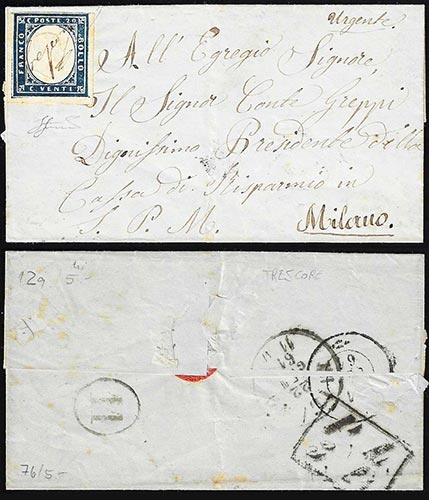 C. POSTE 20
FRANCO
BOLLO
C. VENTI
Urgente.
All' Egregio Signore,
Il Signor Conte Greppi
Dignissimo Presidente della
Cassa di Risparmio in
S. P. M. Milano.
129 5-
TRESCORE
11
61
22
11
76/5-